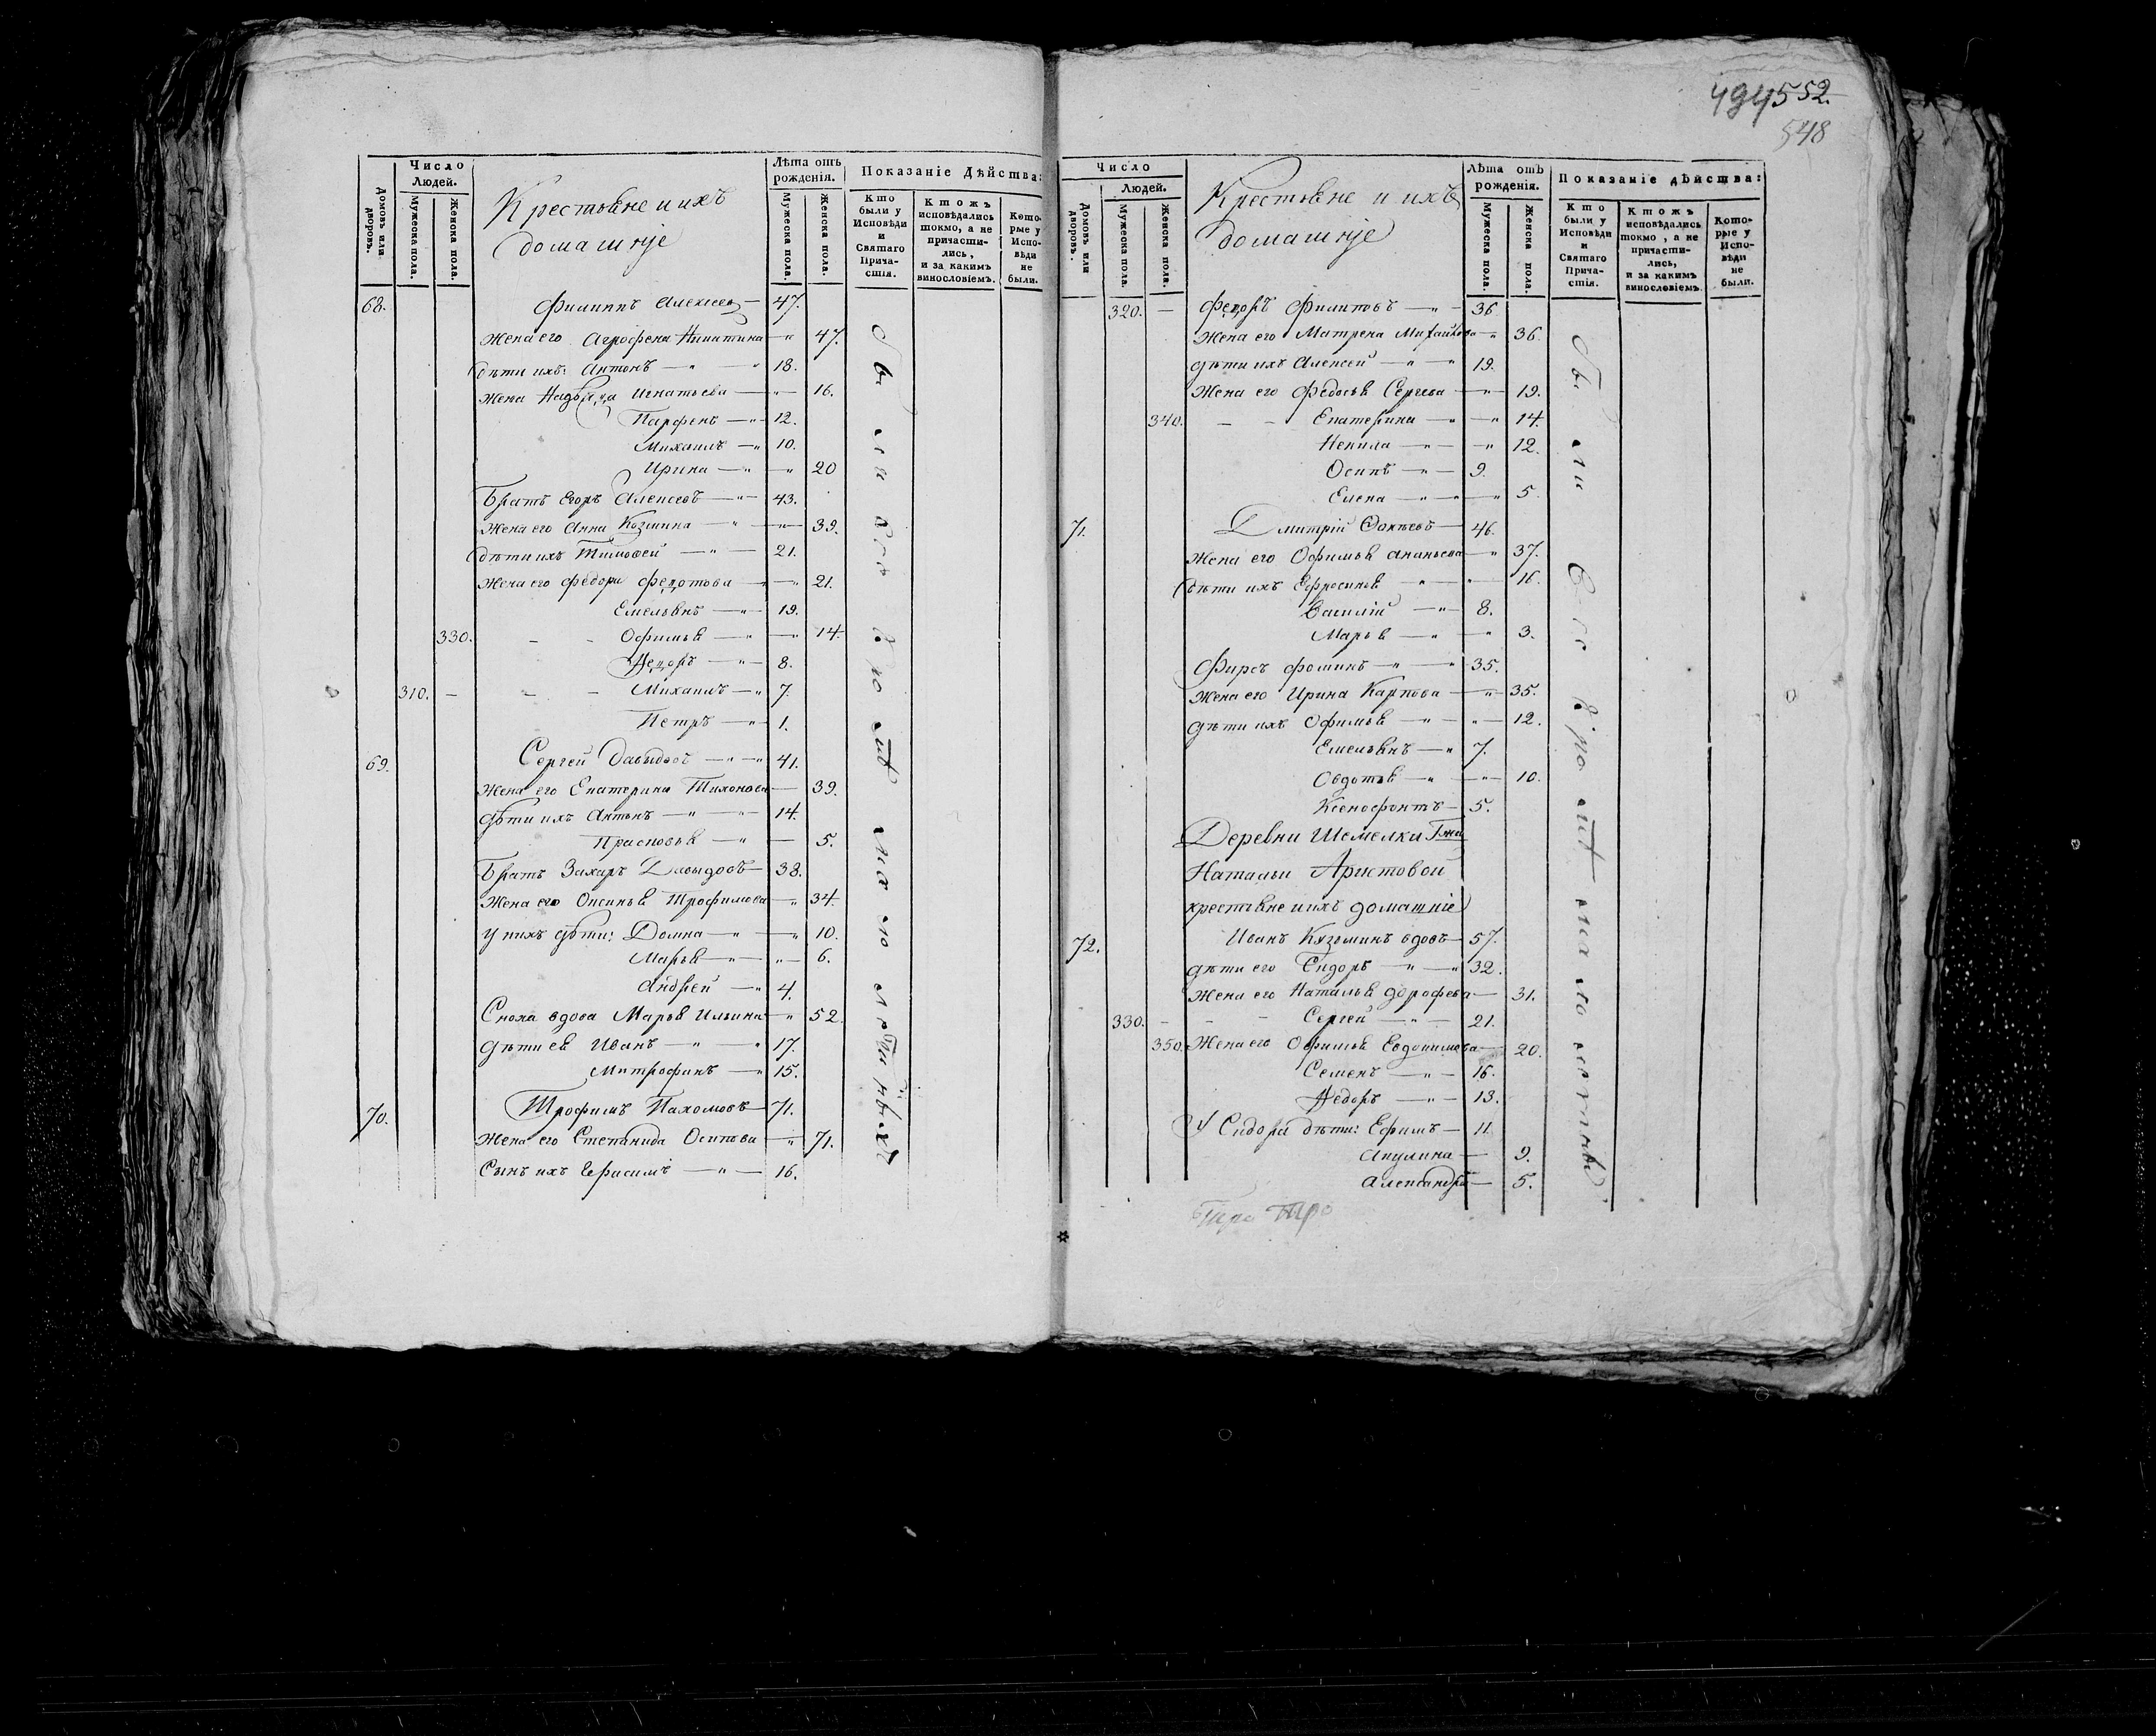 494 552.
548
Домовъ или дворовъ.
Число Людей.
Мужеска пола.
Женска пола.
Крестьяне и ихъ
домашніе
Лѣта отъ рожденія.
Мужеска пола.
Женска пола.
Показаніе Дѣйства:
Кто были у Исповѣди и Святаго Причастія.
Ктожъ исповѣдались токмо, а не причастились, и за какимъ винословіемъ.
Которые у Исповѣди не были.
68. Филиппъ Алексеев — 47.
Жена его Агрофена Никитина — 47.
дѣти ихъ: Антонъ — 18.
Жена Игнатьева — 16.
Парфенъ — 12.
Михаилъ — 10.
Ирина — 20
Братъ Егоръ Алексеевъ — 43.
Жена его Анна Козмина — 39.
дѣти ихъ Тимофей — 21.
Жена его Федора Федотова — 21.
Емельянъ — 19.
330. Офимья — 14.
Федоръ — 8.
310. Михаилъ — 7.
Петръ — 1.
69. Сергей Давыдовъ — 41.
Жена его Екатерина Тихонова — 39.
дѣти ихъ Антонъ — 14.
Прасковья — 5.
Братъ Захаръ Давыдовъ — 38.
Жена его Оксинья Трофимова — 34.
у нихъ дѣти: Домна — 10.
Марья — 6.
Андрей — 4.
Сноха вдова Марья Ильина — 52.
дѣти ея Иванъ — 17.
Митрофанъ — 15.
70. Трофимъ Пахомовъ — 71.
Жена его Степанида Осипова — 71.
Сынъ ихъ Герасимъ — 16.
Были все кроме малолетныхъ
Домовъ или дворовъ.
Число Людей.
Мужеска пола.
Женска пола.
Крестьяне и ихъ
домашніе
Лѣта отъ рожденія.
Мужеска пола.
Женска пола.
Показаніе дѣйства:
Кто были у Исповѣди и Святаго Причастія.
Ктожъ исповѣдались токмо, а не причастились, и за какимъ винословіемъ.
Которые у Исповѣди не были.
320. — Федоръ Филиповъ — 36.
Жена его Матрена Михайлова — 36.
дѣти ихъ Алексей — 19.
Жена его Федосья Сергева — 19.
340. Екатерина — 14.
Ненила — 12.
Осипъ — 9.
Елена — 5.
71. Дмитрій — 46.
Жена его Офимья Ананьева — 37.
дѣти ихъ Ефросинья — 16.
Василій — 8.
Марья — 3.
Фирсъ Фоминъ — 35.
Жена его Ирина Карпова — 35.
дѣти ихъ Офимья — 12.
Емельянъ — 7.
Овдотья — 10.
Ксенофонтъ — 5.
Деревни Шемелки Гжи
Натальи Аристовой
крестьяне и ихъ домашніе
72. Иванъ Кузминъ вдовъ — 57.
дѣти его Сидоръ — 32.
Жена его Наталья Дорофева — 31.
330. Сергей — 21.
350. Жена его Офимья Евдокимова — 20.
Семенъ — 16.
Федоръ — 13.
У Сидора дѣти: Ефимъ — 11.
Акулина — 9.
Александра — 5.
Были все кроме малолетныхъ